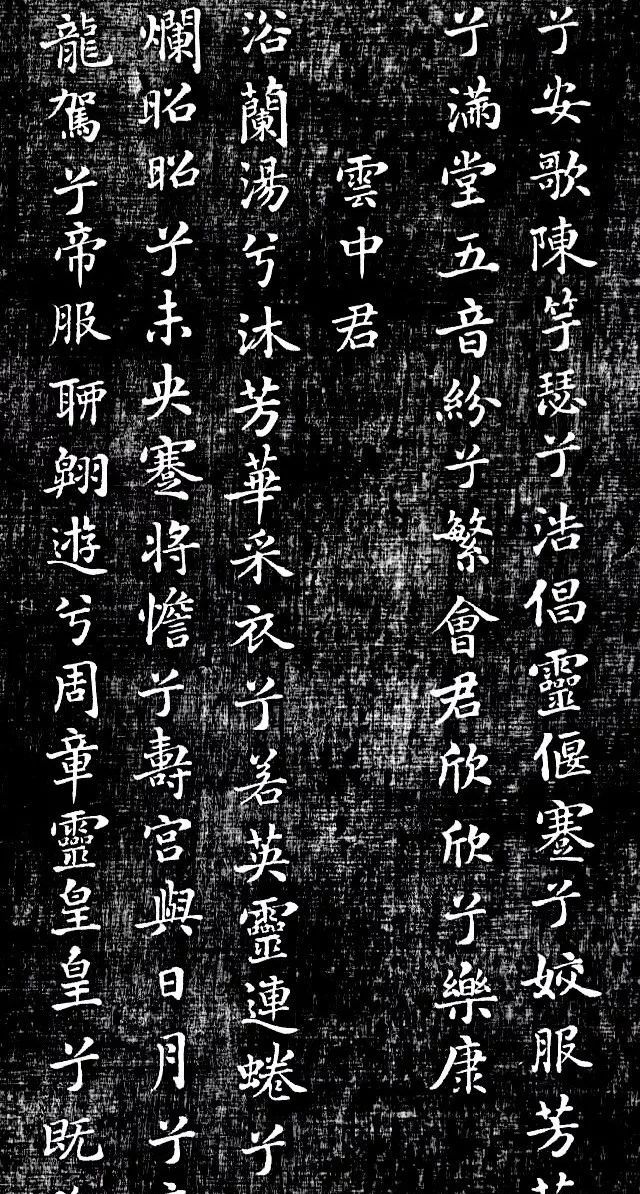 兮安歌陳竽瑟兮浩倡靈偃蹇兮姣服芳
兮滿堂五音紛兮繁會君欣欣兮樂康
雲中君
浴蘭湯兮沐芳華采衣兮若英靈連蜷兮
爛昭昭兮未央蹇將憺兮壽宮與日月兮
龍駕兮帝服聊翱遊兮周章靈皇皇兮既